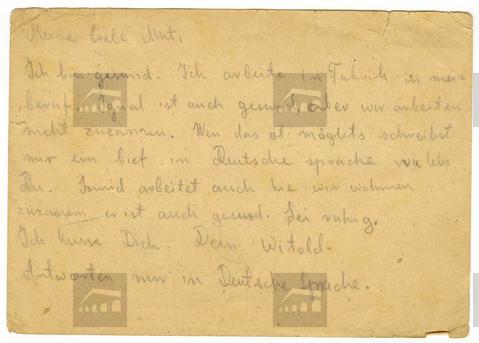 Meine liebe Mut,
Ich bin gesund. Ich arbeite in Fabrik in mein
beruf. Ignal ist auch gesund, aber wir arbeiten
nicht zuzamen. Wen das ist möglits schreibst
mir ein bief in Deutsche sprache wie lebs
Du. Izmid arbeitet auch hie wir wohnen
zuzamem er ist auch gesund. Sei ruhig.
Ich kusse Dich. Dein Witold.
Antworten nur in Deutsche Sprache.